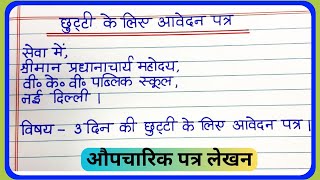 छुट्टी के लिए आवेदन पत्र
सेवा में,
श्रीमान प्रधानाचार्य महोदय,
वी॰ के॰ वी॰ पब्लिक स्कूल,
नई दिल्ली ।
विषय – 3 दिन की छुट्टी के लिए आवेदन पत्र ।
औपचारिक पत्र लेखन